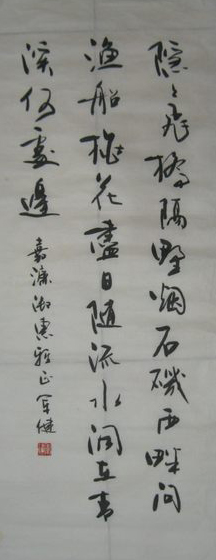 隱々飛橋隔野烟石磯西畔問
漁船桃花盡日隨流水洞在清
溪何處邊
嘉濂淑惠雅正軍健